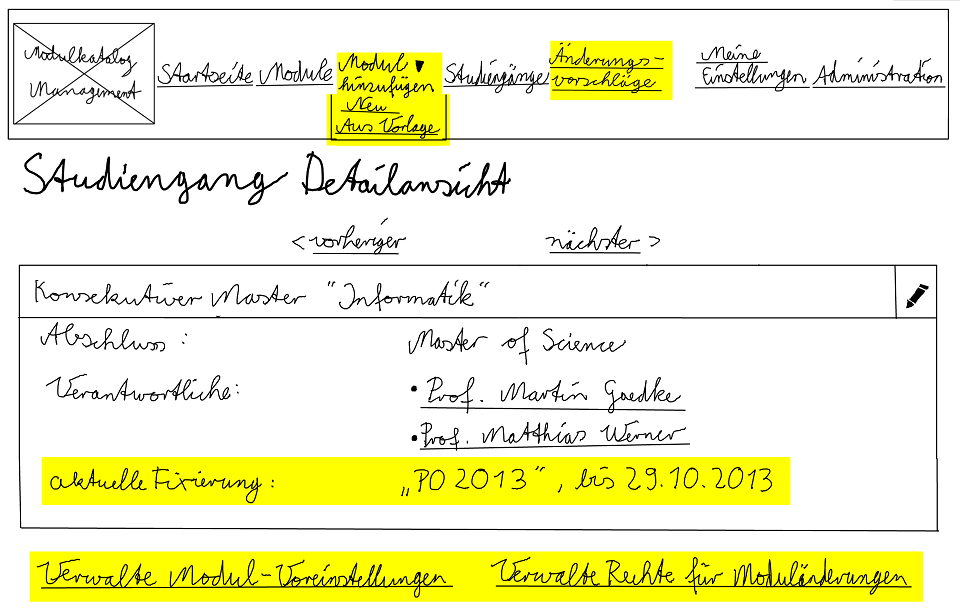 Modulkatalog
Management
Startseite Module Modul ▼ hinzufügen Studiengänge Änderungs-vorschläge Meine Einstellungen Administration
Neu
Aus Vorlage
Studiengang Detailansicht
< vorheriger nächster >
Konsekutiver Master "Informatik"
Abschluss: Master of Science
Verantwortliche: • Prof. Martin Gaedke
• Prof. Matthias Werner
aktuelle Fixierung: „PO 2013", bis 29.10.2013
Verwalte Modul-Voreinstellungen Verwalte Rechte für Moduländerungen